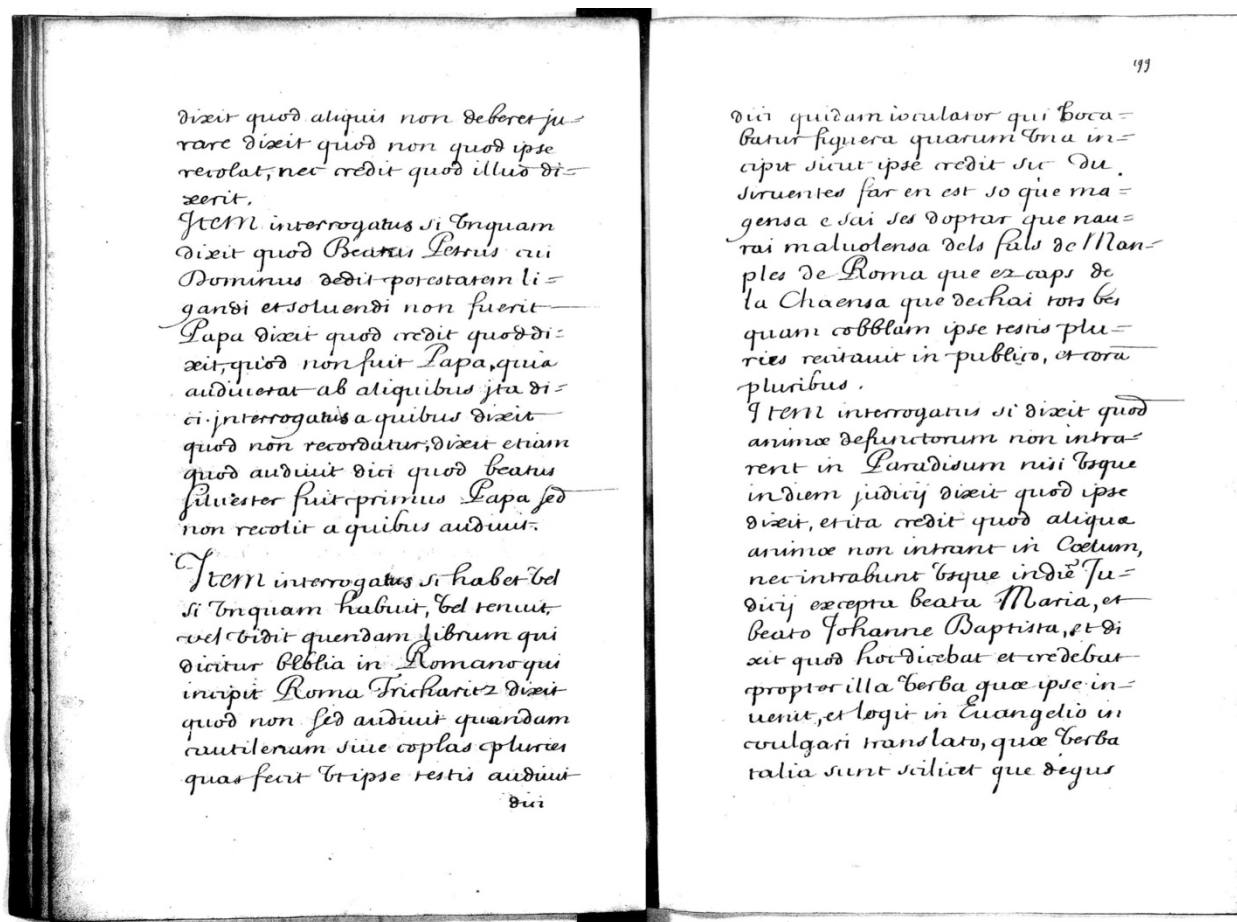 dixit quod aliquis non deberet ju=
rare dixit quod non quod ipse
recolat, nec credit quod illud di=
xerit.
Item interrogatus si vnquam
dixit quod Beatus Petrus cui
Dominus dedit potestatem li=
gandi et soluendi non fuerit
Papa dixit quod credit quod di=
xit, quod non fuit Papa, quia
audiuerat ab aliquibus jta di=
ci. jnterrogatus a quibus dixit
quod non recordatur, dixit etiam
quod audiuit dici quod beatus
siluester fuit primus Papa sed
non recolit a quibus audiuit.
Item interrogatus si habet vel
si vnquam habuit, vel tenuit,
vel vidit quendam librum qui
dicitur biblia in Romano qui
incipit Roma Tricharitz dixit
quod non sed audiuit quandam
cantilenam siue coplas pluries
quas fecit vt ipse testis audiuit
dici
199
dici quidam ioculator qui voca=
batur figuera quarum vna in=
cipit sicut ipse credit sic du
siruentes far en est so que ma=
gensa e sai ses doptar que nau=
rai maluolensa dels fals de Man=
ples de Roma que ez caps de
la Chaensa que dechai tots bes
quam cobblam ipse testis plu=
ries recitauit in publico, et corā
pluribus.
Item interrogatus si dixit quod
animæ defunctorum non intra=
rent in Paradisum nisi vsque
in diem judicij dixit quod ipse
dixit, et ita credit quod aliquæ
animæ non intrant in Cœlum,
nec intrabunt vsque in diē Ju=
dicij excepta beata Maria, et
beato Johanne Baptista, et di
xit quod hoc dicebat et credebat
propter illa verba quæ ipse in=
uenit, et legit in Euangelio in
vulgari translato, quæ verba
talia sunt scilicet que degus